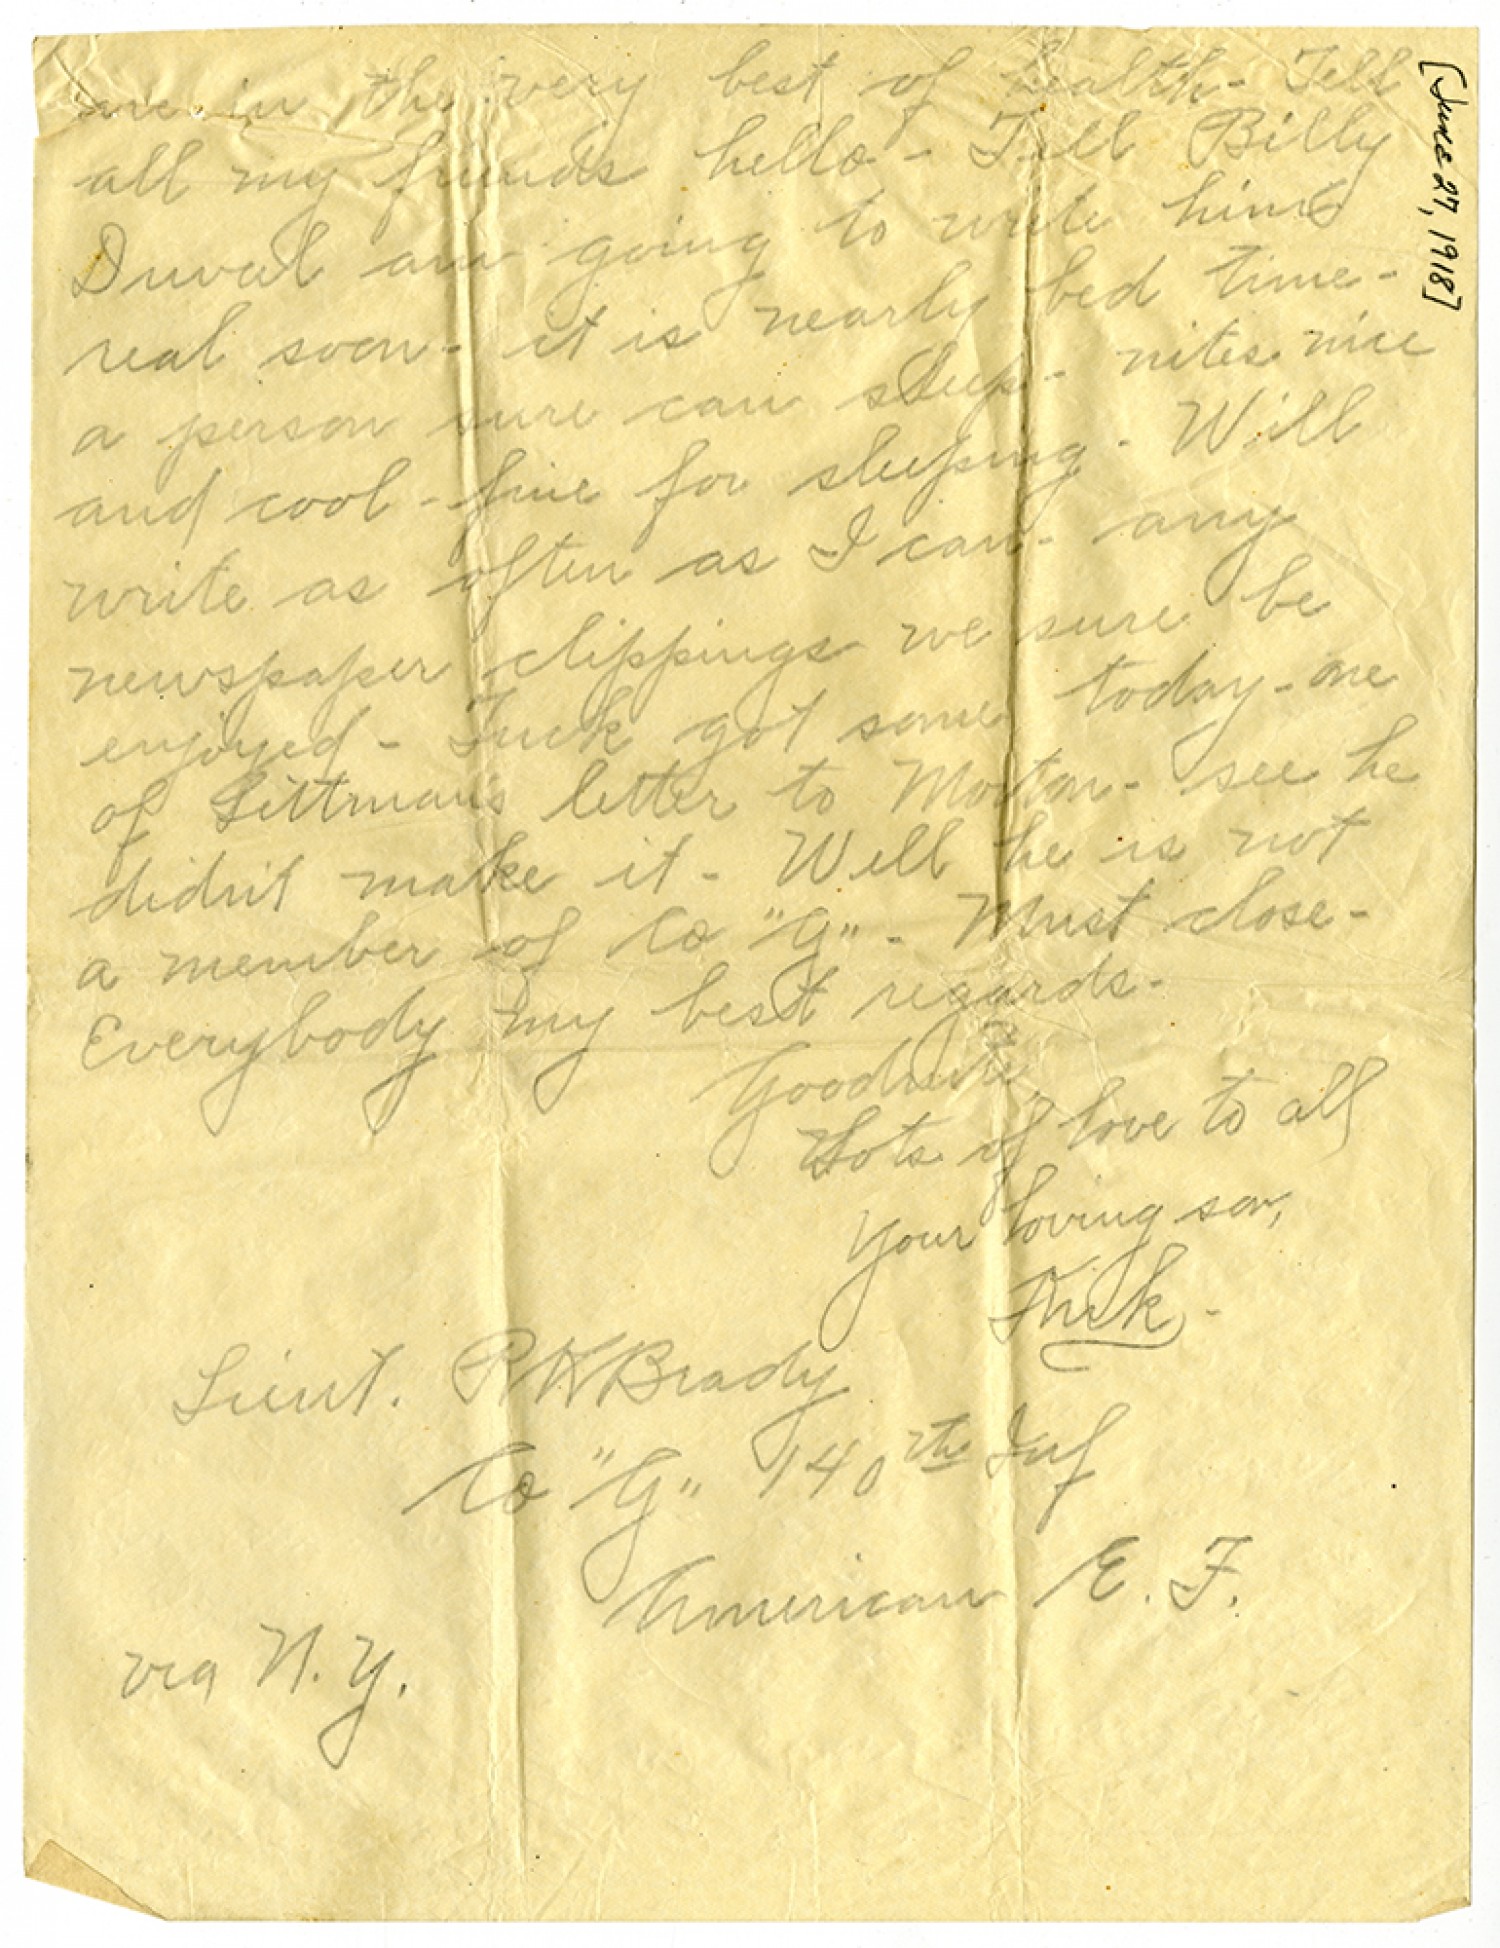 [June 27, 1918]
are in the very best of health - Tell
all my friends hello - Tell Billy
Duval am going to write him
real soon - it is nearly bed time -
a person sure can sleep - nites nice
and cool - fine for sleeping - Will
write as often as I can - any
newspaper clippings we sure be
enjoyed - Tuck got some today - one
of Littman's letter to Morton - see he
didn't make it - Well he is not
a member of Co "G" - Must close -
Everybody my best regards -
Goodnite
Lots of love to all
Your loving son,
Lieut. R K Brady
Co "G" 140th Inf
American E. F.
via N. Y.